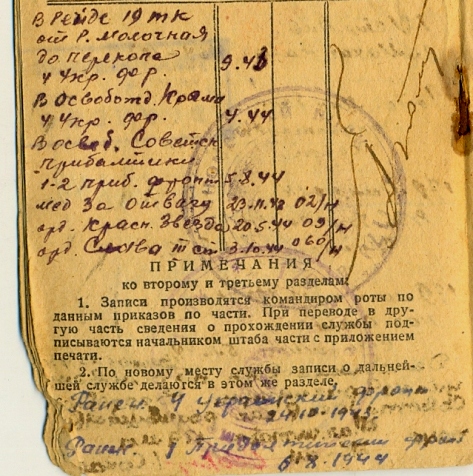 В Рейде 19 тк
от р. Молочная
до перекопа
4 Укр. фр. 9.43
В Освобожд. Крыма
4 Укр. фр. 4.44
В освоб. Советск
прибалтики
1-2 приб. фронт 5-8.44
мед За отвагу 23.11.43 02/н
орд. Красн. Звезда 20.5.44 09/н
орд. Слава 3.10.44 060/н
ПРИМЕЧАНИЯ
ко второму и третьему разделам:
1. Записи производятся командиром роты по
данным приказов по части. При переводе в дру-
гую часть сведения о прохождении службы под-
писываются начальником штаба части с приложением
печати.
2. По новому месту службы записи о дальней-
шей службе делаются в этом же разделе.
Ранен 4 украинский фронт
1943
Ранен 1 Прибалтийский фронт
8 1944